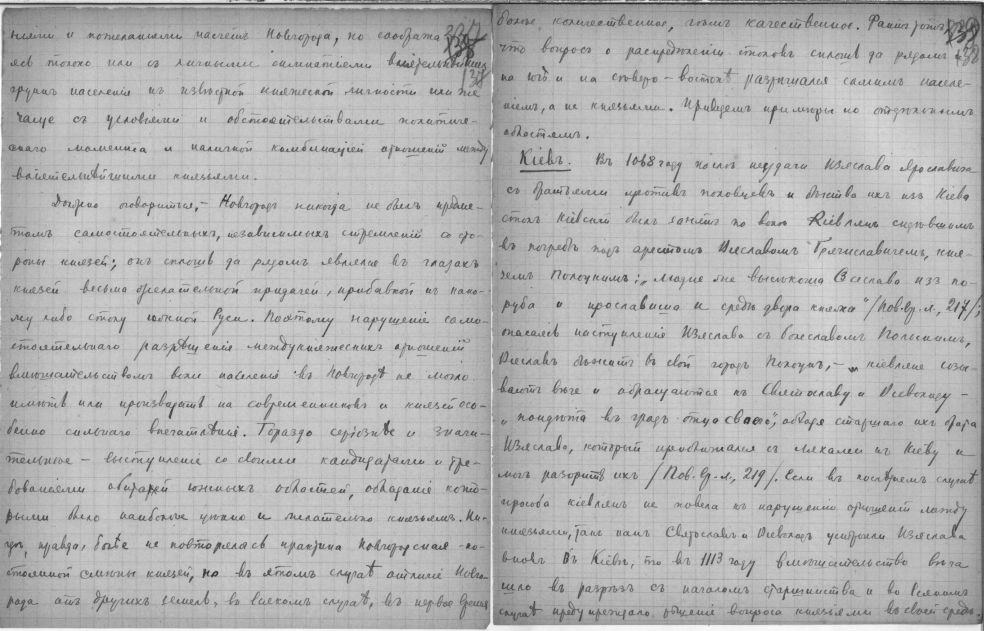 ніями и пожеланіями насчетъ Новгорода, но сообража-
ясь только или съ личными симпатіями вліятельныхъ
группъ населенія къ извѣстной княжеской личности или же
чаще съ условіями и обстоятельствами политиче-
скаго момента и наличной комбинаціей отношеній между
вліятельнѣйшими князьями.
Должно оговориться, - Новгородъ никогда не былъ предме-
томъ самостоятельныхъ, независимыхъ стремленій со сто-
роны князей; онъ сплошь да рядомъ явленіе въ глазахъ
князей весьма желательной придачей, прибавкой къ како-
му либо столу южной Руси. Поэтому нарушеніе само-
стоятельнаго разрѣшенія междукняжескихъ отношеній
вмѣшательствомъ воли населенія въ Новгородѣ не могло
имѣть или производить на современниковъ и князей осо-
бенно сильнаго впечатлѣнія. Гораздо серіознѣе и значи-
тельнѣе - выступленіе со своими кандидатами и тре-
бованіями областей южныхъ областей, обладаніе кото-
рыми было наиболѣе цѣнно и желательно князьямъ. Ни-
гдѣ, правда, болѣе не повторялась практика Новгородская по-
стоянной смѣны князей, но въ этомъ случаѣ отличіе Новго-
рода отъ другихъ земель, во всякомъ случаѣ, въ первое время
болѣе количественное, чѣмъ качественное. Фактъ тотъ,
что вопросъ о распредѣленіи столовъ сплошь да рядомъ
на югѣ и на сѣверо-востокѣ разрѣшался самимъ населе-
ніемъ, а не князьями. Приведемъ примѣры по отдѣльнымъ
областямъ.
Кіевъ. Въ 1068 году послѣ неудачи Изяслава Ярославича
съ братьями противъ половцевъ и бѣгства ихъ изъ Кіева
столъ Кіевскій былъ занятъ по волѣ Кіевлянъ сидѣвшимъ
въ погребѣ подъ арестомъ Всеславомъ Брячиславичемъ, кня-
земъ Полоцкимъ; „людие же высѣкоша Всеслава изъ по-
руба и прославиша и средѣ двора княжа" /Пов.вр.л., 217/;
опасаясь наступленія Изяслава съ Болеславомъ Польскимъ,
Всеславъ бѣжитъ въ свой городъ Полоцкъ, - кіевляне созы-
ваютъ вѣче и обращаются къ Святославу и Всеволоду -
„поидѣта въ градъ отца своего", обходя старшаго ихъ брата
Изяслава, который приближался съ ляхами къ Кіеву и
могъ разорить ихъ /Пов.вр.л., 219/. Если въ послѣднемъ случаѣ
просьба кіевлянъ не повела къ нарушенію отношеній между
князьями, такъ какъ Святославъ и Всеволодъ уступили Изяслава
вновь въ Кіевѣ, то въ 1113 году вмѣшательство вѣча
шло въ разрѣзъ съ началомъ старшинства и во всякомъ
случаѣ предупреждало рѣшеніе вопроса князьями въ своей средѣ.